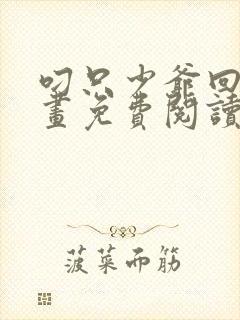 叼只少爺回
畫免費閱讀
菠菜而筋